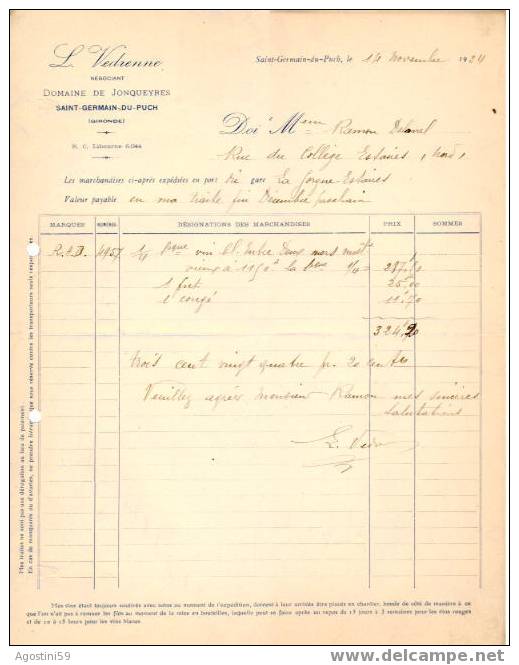 L. Vedrenne
NÉGOCIANT
DOMAINE DE JONQUEYRES
SAINT-GERMAIN-DU-PUCH
(GIRONDE)
R. C. Libourne 6.044
Saint-Germain-du-Puch, le 14 Novembre 1924
Doi Ramon Delaval
Rue du Collège Estaires (Nord)
Les marchandises ci-après expédiées en port gare La Gorgue Estaires
Valeur payable en ma traite fin Décembre prochain
MARQUES NUMÉROS DÉSIGNATIONS DES MARCHANDISES PRIX SOMMES
R.D. 4957 1/4 vin Bl. Entre Deux mers
vieux à 1150 la 1/4 = 287,50
1 fut 25,00
1 congé 11,70
324,20
trois cent vingt quatre fr. 20 centes
Veuillez agréer Monsieur Ramon mes sincères
salutations
L. Vedr
Mes traites ne sont pas une dérogation au lieu de paiement.
En cas de manquants ou d'avaries, se prendre livraison que sous réserve contre les transporteurs seuls responsables.
Mes vins étant toujours soutirés avec soins au moment de l'expédition, doivent à leur arrivée être placés en chantier, bonde de côté de manière à ce
que l'on n'ait pas à remuer les fûts au moment de la mise en bouteilles, laquelle peut se faire après un repos de 15 jours à 3 semaines pour les vins rouges
et de 10 à 15 jours pour les vins blancs.
Agostini59
delcampe.net